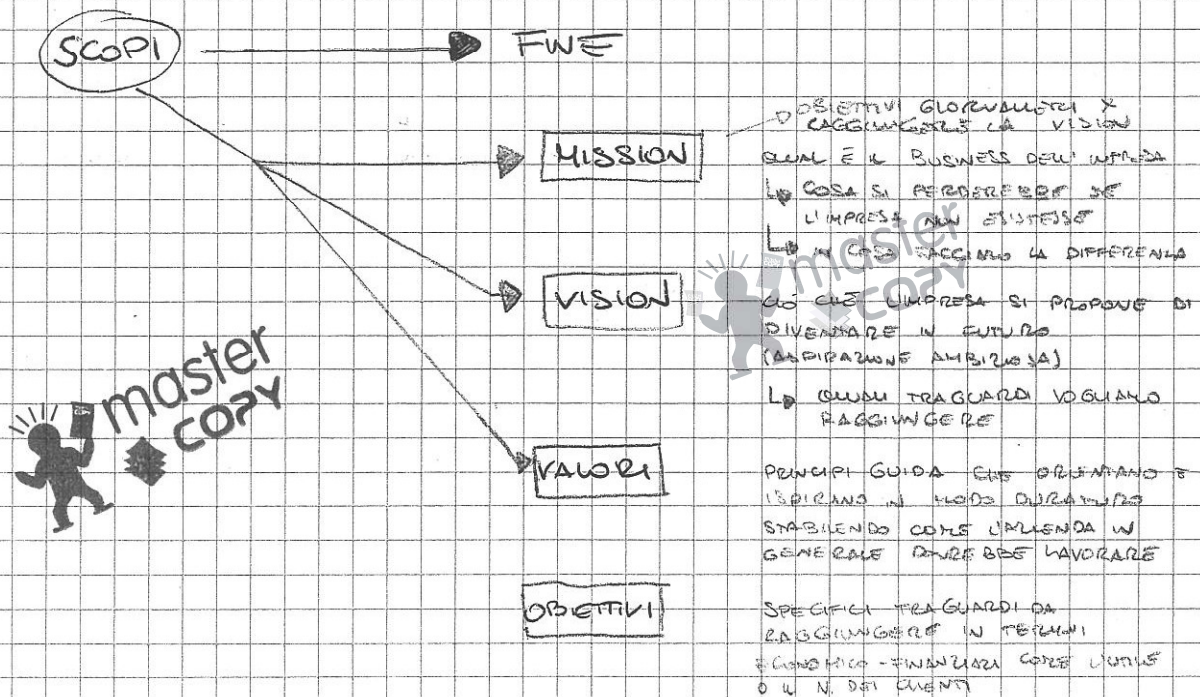 SCOPI
FINE
MISSION
OBIETTIVI GIORNALIERI X
RAGGIUNGERE LA VISION
QUAL È IL BUSINESS DELL'IMPRESA
COSA SI PERDEREBBE SE
L'IMPRESA NON ESISTESSE
IN COSA FACCIAMO LA DIFFERENZA
VISION
CIÒ CHE L'IMPRESA SI PROPONE DI
DIVENTARE IN FUTURO
(ASPIRAZIONE AMBIZIOSA)
QUALI TRAGUARDI VOGLIAMO
RAGGIUNGERE
VALORI
PRINCIPI GUIDA CHE ORIENTANO E
ISPIRANO IN MODO DURATURO
STABILENDO COME L'AZIENDA IN
GENERALE DOVREBBE LAVORARE
OBIETTIVI
SPECIFICI TRAGUARDI DA
RAGGIUNGERE IN TERMINI
ECONOMICO-FINANZIARI COME L'UTILE
O IL N. DEI CLIENTI
master
COPY
master
COPY